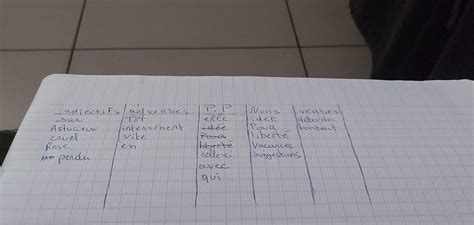 adjectifs adverbes P.P Noms verbes
sur Tot elle idée
Astucieux intensément idée Pour tombait
cruel vite Pour liberté
Rose en liberté vacances
perdu celle-ci suggestions
avec
qui